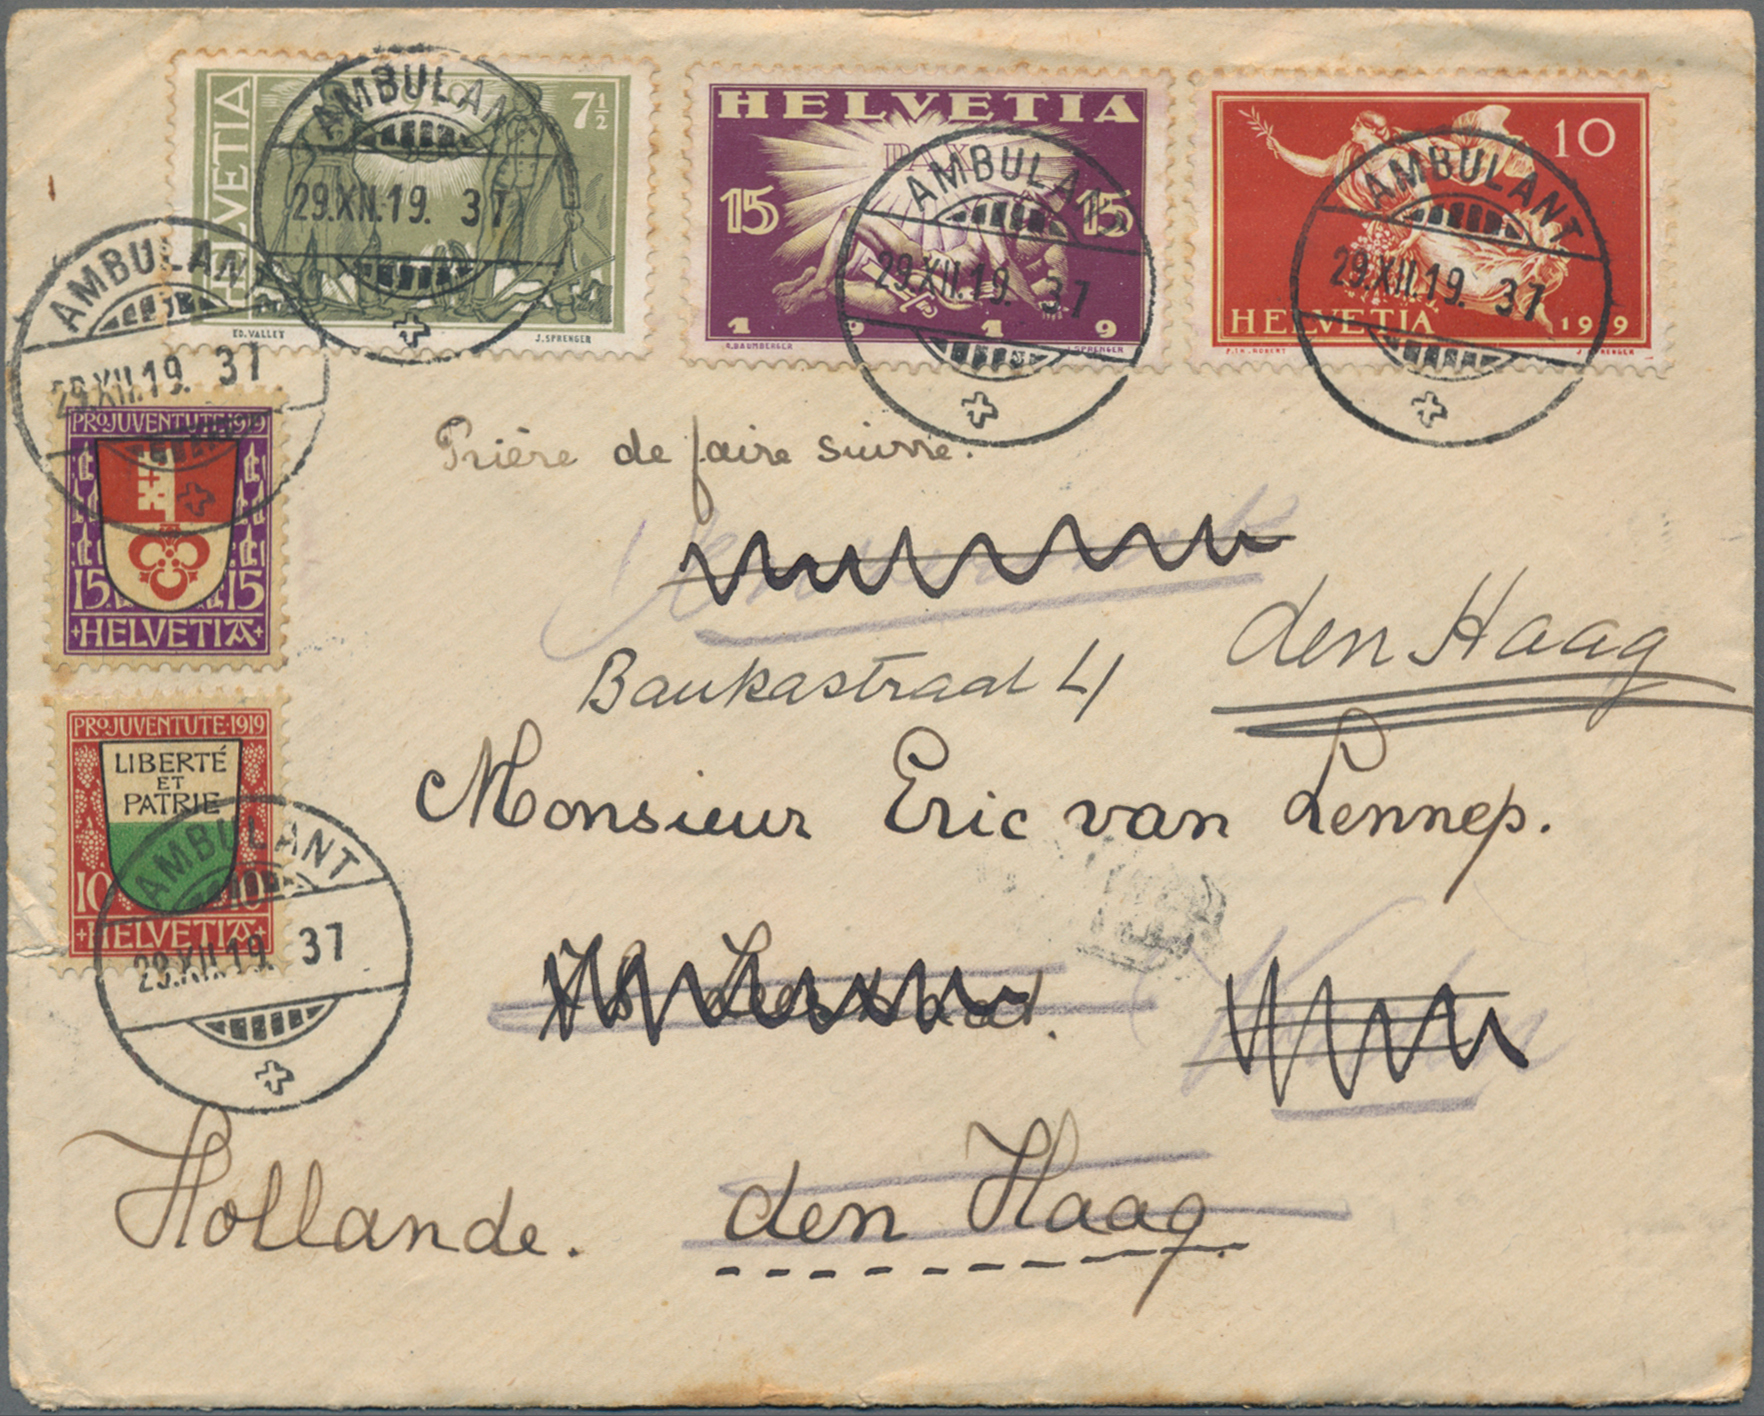 HELVETIA
7½
ED. VALLET
J. SPRENGER
AMBULANT
29.XII.19. 37
HELVETIA
PAX
15 15
1 9 1 9
E. BAUMBERGER
J. SPRENGER
AMBULANT
29.XII.19. 37
10
HELVETIA 1919
P. TH. ROBERT
J. SPRENGER
AMBULANT
29.XII.19. 37
AMBULANT
29.XII.19. 37
PRO JUVENTUTE·1919
15 15
+HELVETIA+
PRO JUVENTUTE·1919
LIBERTÉ
ET
PATRIE
10 10
+HELVETIA+
AMBULANT
29.XII.19. 37
Prière de faire suivre.
Baukastraat 4
den Haag
Monsieur Eric van Lennep.
den Haag.
Hollande.